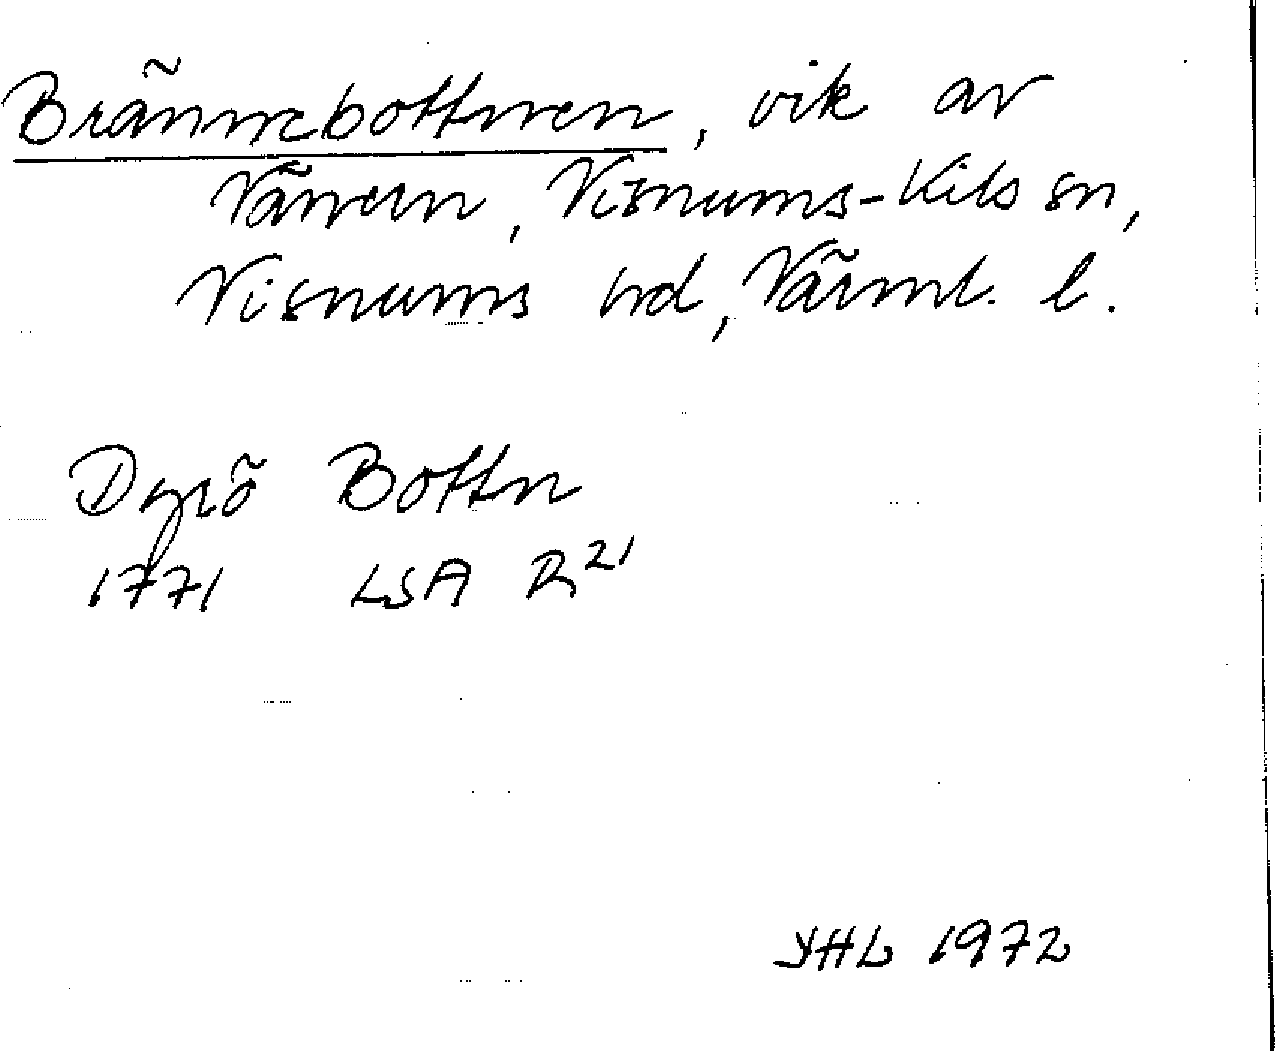 Brännebottnen, vik av
Vänern, Visnums-Kils sn,
Visnums hd, Värml. l.
Dyrö Bottn
1771 LSA R21
YHL 1972